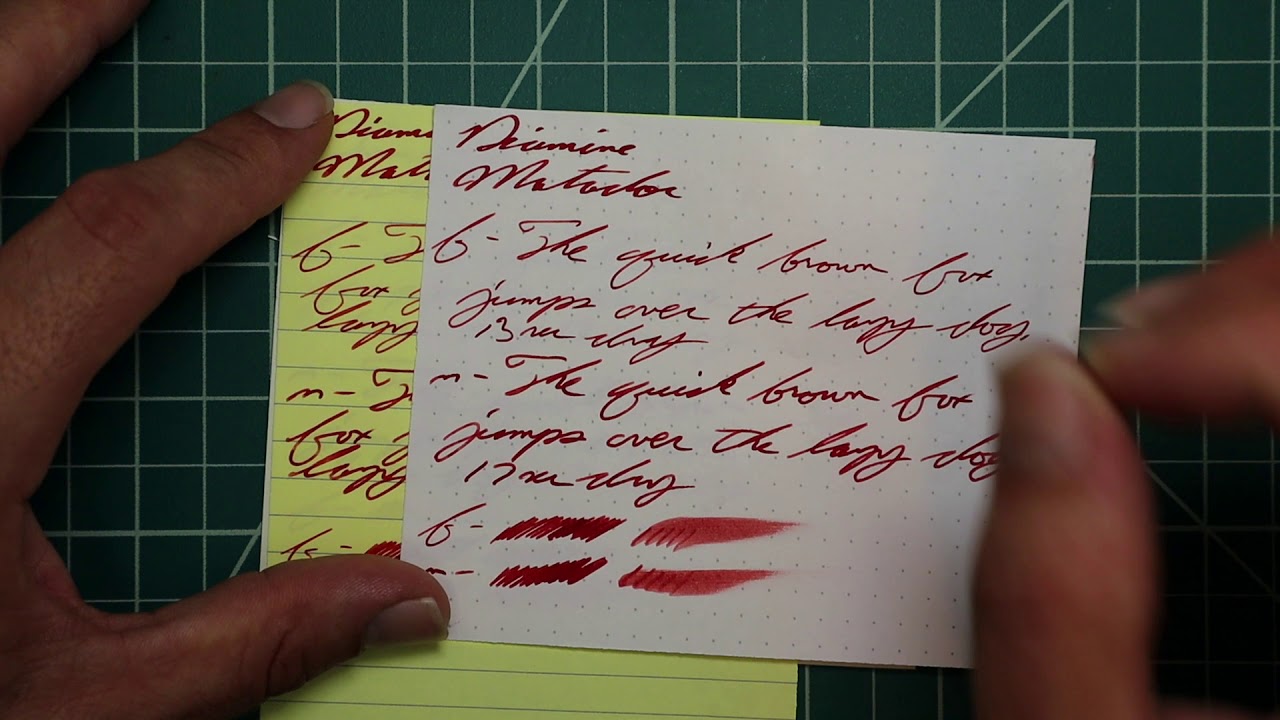 Diamine
Matador
f - The quick brown fox
jumps over the lazy dog.
13 sec dry
m - The quick brown fox
jumps over the lazy dog
17 sec dry
f -
m -
Diam
Mat
f - T
fox j
lazy
m - T
fox j
lazy
f -